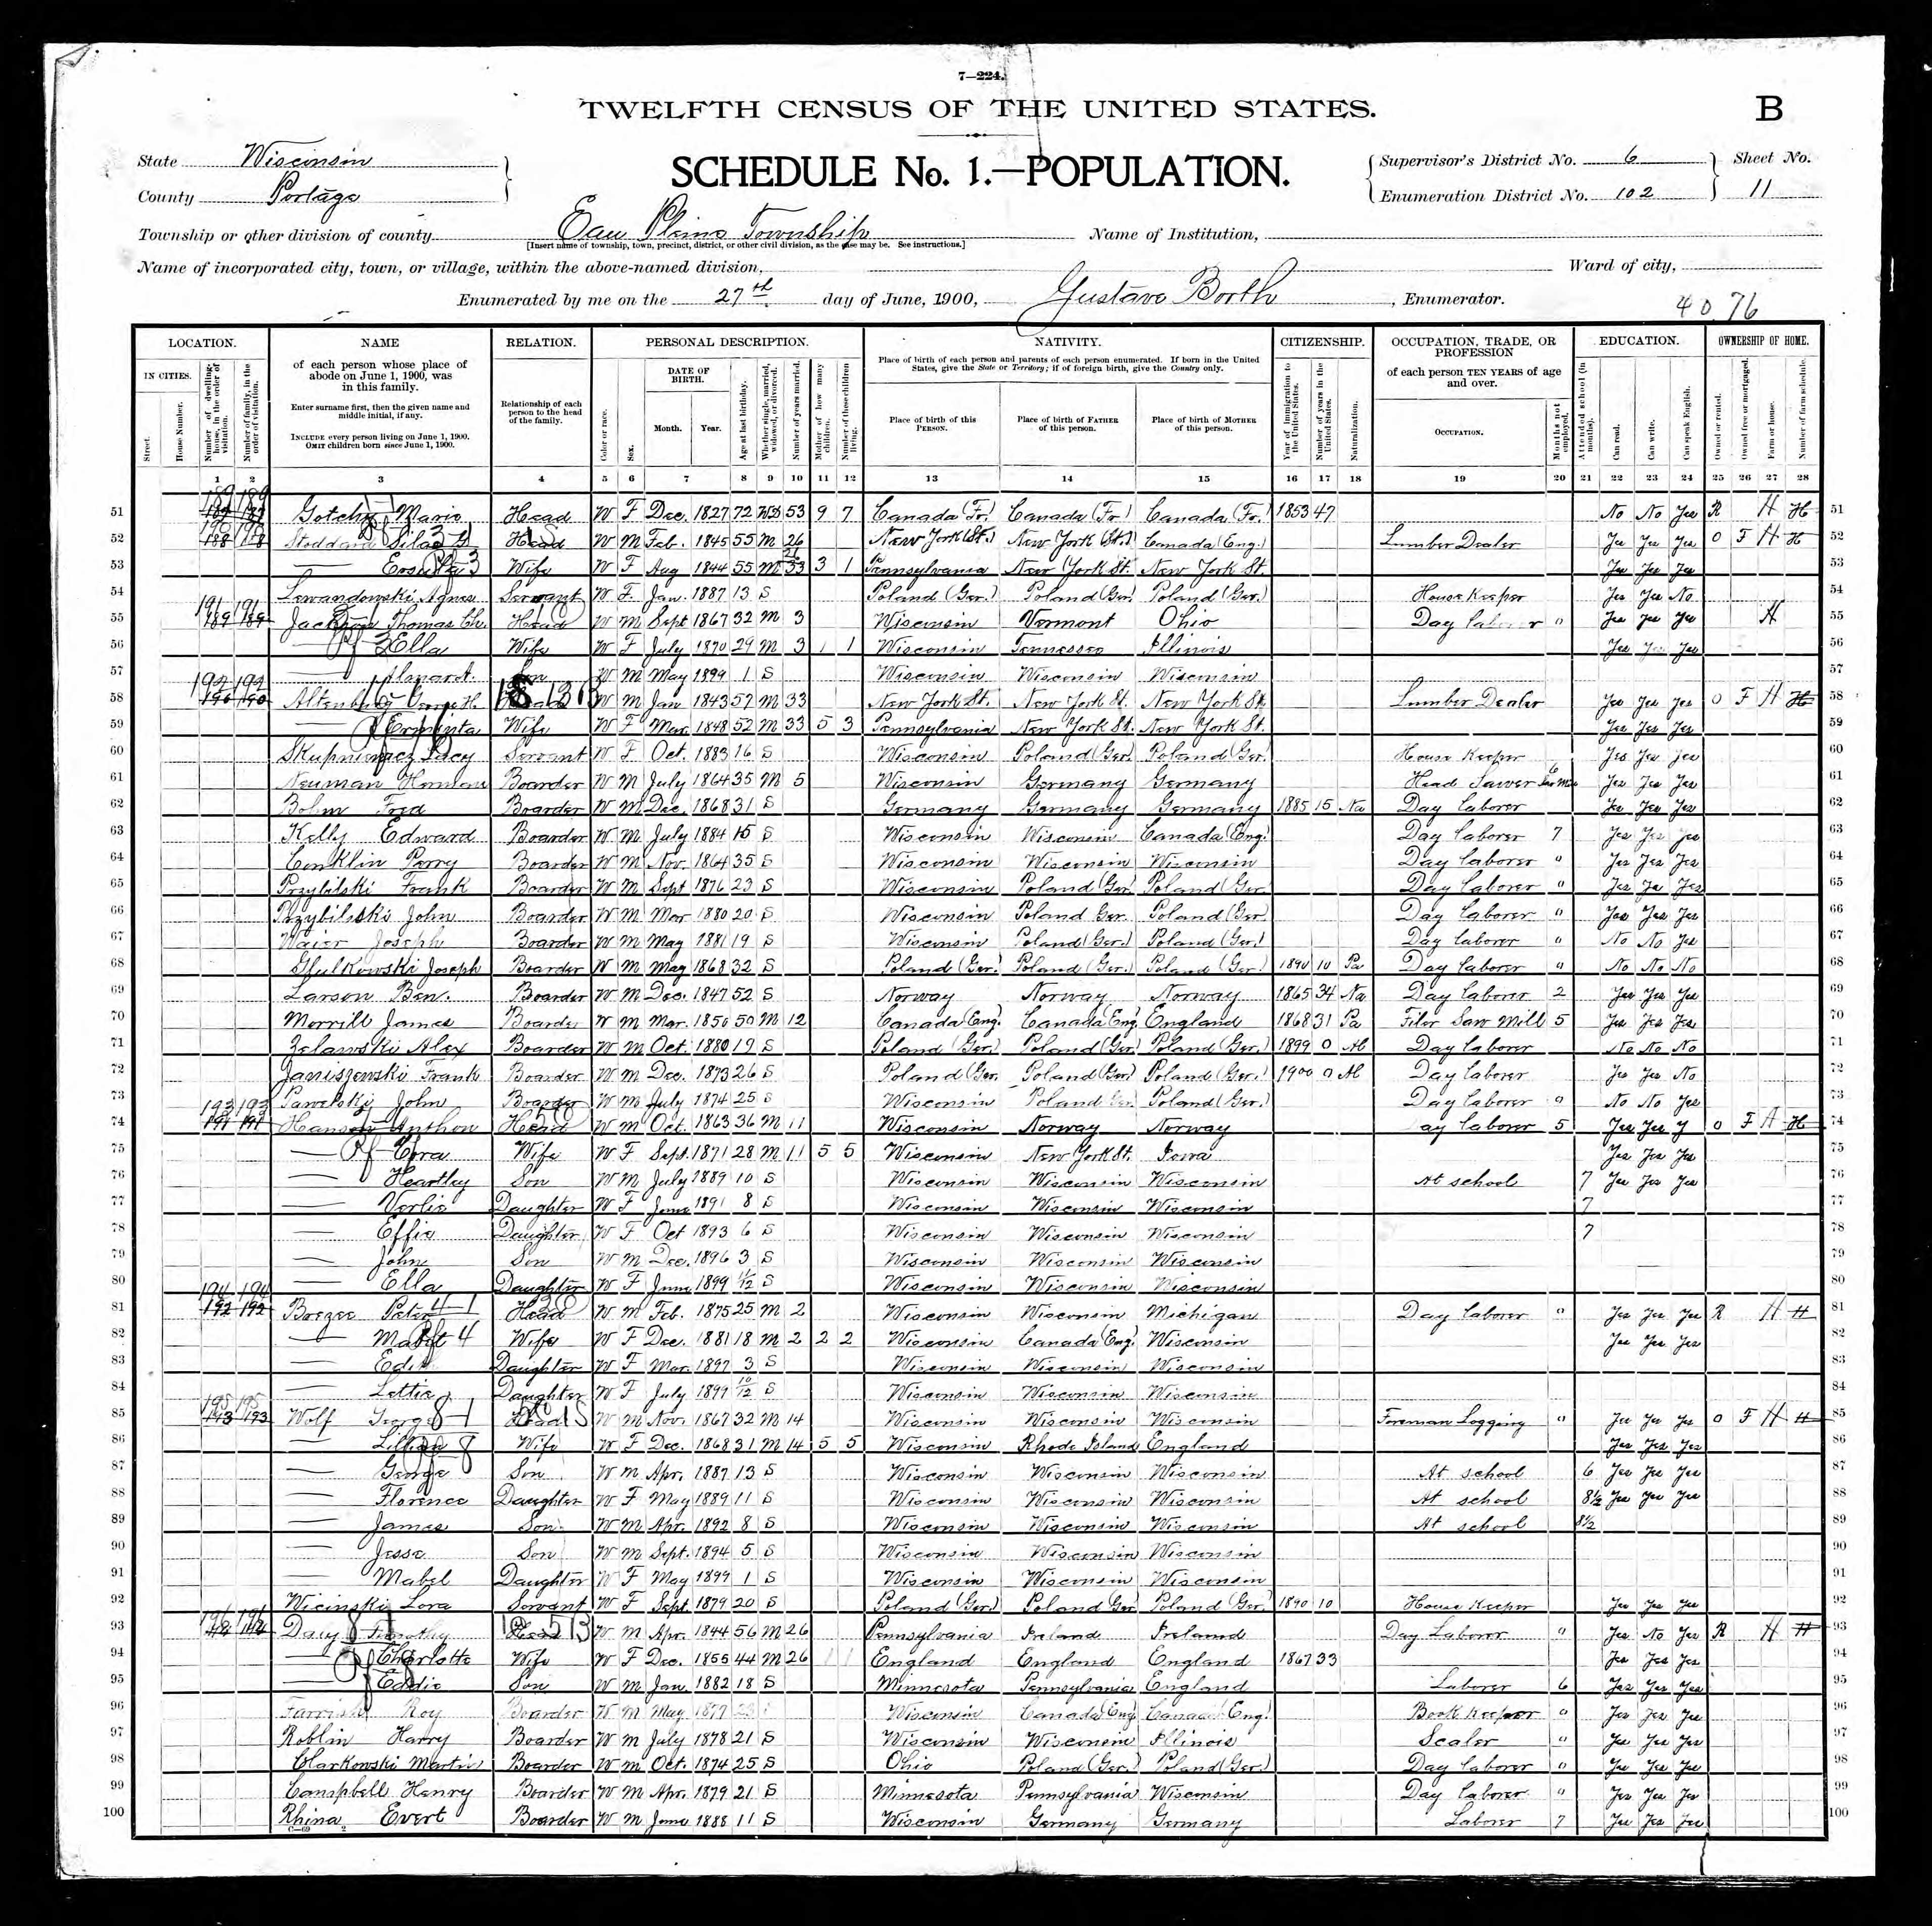 7—224.
TWELFTH CENSUS OF THE UNITED STATES.
B
State Wisconsin
County Portage
SCHEDULE No. 1.—POPULATION.
Supervisor's District No. 6
Enumeration District No. 102
Sheet No. 11
Township or other division of county Eau Pleine Township
[Insert name of township, town, precinct, district, or other civil division, as the case may be. See instructions.]
Name of Institution,
Name of incorporated city, town, or village, within the above-named division,
Ward of city,
Enumerated by me on the 27th day of June, 1900, Gustave Borth, Enumerator.
40 76
LOCATION. NAME RELATION. PERSONAL DESCRIPTION. NATIVITY. CITIZENSHIP. OCCUPATION, TRADE, OR PROFESSION EDUCATION. OWNERSHIP OF HOME.
IN CITIES.
Street.
House Number.
Number of dwelling-house, in the order of visitation.
Number of family, in the order of visitation.
of each person whose place of abode on June 1, 1900, was in this family.
Enter surname first, then the given name and middle initial, if any.
INCLUDE every person living on June 1, 1900. OMIT children born since June 1, 1900.
Relationship of each person to the head of the family.
Color or race.
Sex.
DATE OF BIRTH.
Month. Year.
Age at last birthday.
Whether single, married, widowed, or divorced.
Number of years married.
Mother of how many children.
Number of these children living.
Place of birth of each person and parents of each person enumerated. If born in the United States, give the State or Territory; if of foreign birth, give the Country only.
Place of birth of this PERSON.
Place of birth of FATHER of this person.
Place of birth of MOTHER of this person.
Year of immigration to the United States.
Number of years in the United States.
Naturalization.
of each person TEN YEARS of age and over.
OCCUPATION.
Months not employed.
Attended school (in months).
Can read.
Can write.
Can speak English.
Owned or rented.
Owned free or mortgaged.
Farm or house.
Number of farm schedule.
1 2 3 4 5 6 7 8 9 10 11 12 13 14 15 16 17 18 19 20 21 22 23 24 25 26 27 28
51 189 189 Gotchy Marie Head W F Dec. 1827 72 Wd 53 9 7 Canada (Fr.) Canada (Fr.) Canada (Fr.) 1853 47 No No Yes R H H 51
52 190 190 Stoddard Silas Head W M Feb. 1845 55 M 26 New York (St.) New York (St.) Canada (Eng.) Lumber Dealer Yes Yes Yes O F H H 52
53 Wife W F Aug 1844 55 M 26 3 1 Pennsylvania New York St. New York St. Yes Yes Yes 53
54 Lewandowski Agnes Servant W F Jan. 1887 13 S Poland (Ger.) Poland (Ger.) Poland (Ger.) House Keeper Yes Yes No 54
55 191 191 Jackson Thomas Head W M Sept 1867 32 M 3 Wisconsin Vermont Ohio Day laborer 0 Yes Yes Yes H 55
56 Ella Wife W F July 1870 29 M 3 1 1 Wisconsin Tennessee Illinois Yes Yes Yes 56
57 Son W M May 1899 1 S Wisconsin Wisconsin Wisconsin 57
58 192 192 Altenburg George H. Head W M Jan 1843 57 M 33 New York St. New York St. New York St. Lumber Dealer Yes Yes Yes O F H H 58
59 Erminta Wife W F Mar. 1848 52 M 33 5 3 Pennsylvania New York St. New York St. Yes Yes Yes 59
60 Skupniewicz Lucy Servant W F Oct. 1883 16 S Wisconsin Poland (Ger.) Poland (Ger.) House Keeper Yes Yes Yes 60
61 Neuman Herman Boarder W M July 1864 35 M 5 Wisconsin Germany Germany Head Sawer 6 Yes Yes Yes 61
62 Bohm Fred Boarder W M Dec. 1868 31 S Germany Germany Germany 1885 15 Na Day laborer Yes Yes Yes 62
63 Kelly Edward Boarder W M July 1884 15 S Wisconsin Wisconsin Canada (Eng.) Day laborer 7 Yes Yes Yes 63
64 Conklin Perry Boarder W M Nov. 1864 35 S Wisconsin Wisconsin Wisconsin Day laborer 0 Yes Yes Yes 64
65 Przybilski Frank Boarder W M Sept 1876 23 S Wisconsin Poland (Ger.) Poland (Ger.) Day laborer 0 Yes Ye Yes 65
66 Przybilski John Boarder W M Mar 1880 20 S Wisconsin Poland Ger. Poland (Ger.) Day laborer 0 Yes Yes Yes 66
67 Joseph Boarder W M May 1881 19 S Wisconsin Poland (Ger.) Poland (Ger.) Day laborer 0 No No Yes 67
68 Joseph Boarder W M May 1868 32 S Poland (Ger.) Poland (Ger.) Poland (Ger.) 1890 10 Pa Day laborer 0 No No No 68
69 Larson Ben. Boarder W M Dec. 1847 52 S Norway Norway Norway 1865 34 Na Day laborer 2 Yes Yes Yes 69
70 Merrill James Boarder W M Mar. 1850 50 M 12 Canada (Eng.) Canada (Eng.) England 1868 31 Pa Filer Saw Mill 5 Yes Yes Yes 70
71 Zelawski Alex Boarder W M Oct. 1880 19 S Poland (Ger.) Poland (Ger.) Poland (Ger.) 1899 0 Al Day laborer No No No 71
72 Janiszewski Frank Boarder W M Dec. 1873 26 S Poland (Ger.) Poland (Ger.) Poland (Ger.) 1900 0 Al Day laborer Yes Yes No 72
73 Pawelski John Boarder W M July 1874 25 S Wisconsin Poland Ger. Poland (Ger.) Day laborer 0 No No Yes 73
74 193 193 Hanson Anthon Head W M Oct. 1863 36 M 11 Wisconsin Norway Norway ay laborer 5 Yes Yes y O F H H 74
75 Cora Wife W F Sept. 1871 28 M 11 5 5 Wisconsin New York St. Iowa Yes Yes Yes 75
76 Heartley Son W M July 1889 10 S Wisconsin Wisconsin Wisconsin At school 7 Yes Yes Yes 76
77 Verlie Daughter W F June 1891 8 S Wisconsin Wisconsin Wisconsin 7 77
78 Effie Daughter W F Oct 1893 6 S Wisconsin Wisconsin Wisconsin 7 78
79 John Son W M Dec. 1896 3 S Wisconsin Wisconsin Wisconsin 79
80 Ella Daughter W F June 1899 11/12 S Wisconsin Wisconsin Wisconsin 80
81 194 194 Peter Head W M Feb. 1875 25 M 2 Wisconsin Wisconsin Michigan Day laborer 0 Yes Yes Yes R H H 81
82 Mabel Wife W F Dec. 1881 18 M 2 2 2 Wisconsin Canada (Eng.) Wisconsin Yes Yes Yes 82
83 Edi Daughter W F Mar. 1897 3 S Wisconsin Wisconsin Wisconsin 83
84 Lettie Daughter W F July 1899 10/12 S Wisconsin Wisconsin Wisconsin 84
85 195 195 Wolf George Head W M Nov. 1867 32 M 14 Wisconsin Wisconsin Wisconsin Foreman Logging 0 Yes Yes Yes O F H H 85
86 Lillian Wife W F Dec. 1868 31 M 14 5 5 Wisconsin Rhode Island England Yes Yes Yes 86
87 George Son W M Apr. 1887 13 S Wisconsin Wisconsin Wisconsin At school 6 Yes Yes Yes 87
88 Florence Daughter W F May 1889 11 S Wisconsin Wisconsin Wisconsin At school 8½ Yes Yes Yes 88
89 James Son W M Apr. 1892 8 S Wisconsin Wisconsin Wisconsin At school 8½ 89
90 Jesse Son W M Sept. 1894 5 S Wisconsin Wisconsin Wisconsin 90
91 Mabel Daughter W F May 1899 1 S Wisconsin Wisconsin Wisconsin 91
92 Wicinski Lora Servant W F Sept. 1879 20 S Poland (Ger.) Poland (Ger.) Poland (Ger.) 1890 10 House Keeper Yes Yes Yes 92
93 196 196 Timothy Head W M Apr. 1844 56 M 26 Pennsylvania Ireland Ireland Day Laborer 0 Yes No Yes R H H 93
94 Charlotte Wife W F Dec. 1855 44 M 26 1 1 England England England 1867 33 Yes Yes Yes 94
95 Eddie Son W M Jan. 1882 18 S Minnesota Pennsylvania England Laborer 6 Yes Yes Yes 95
96 Farrish Roy Boarder W M May Wisconsin Canada (Eng.) Canada (Eng.) Book Keeper 0 Yes Yes Yes 96
97 Roblin Harry Boarder W M July 1878 21 S Wisconsin Wisconsin Illinois Scaler 0 Yes Yes Yes 97
98 Clarkowski Martin Boarder W M Oct. 1874 25 S Ohio Poland (Ger.) Poland (Ger.) Day laborer 0 Yes Yes Yes 98
99 Campbell Henry Boarder W M Apr. 1879 21 S Minnesota Pennsylvania Wisconsin Day laborer 0 Yes Yes Yes 99
100 Rhina Evert Boarder W M June 1888 11 S Wisconsin Germany Germany Laborer 7 Yes Yes Yes 100
C—69